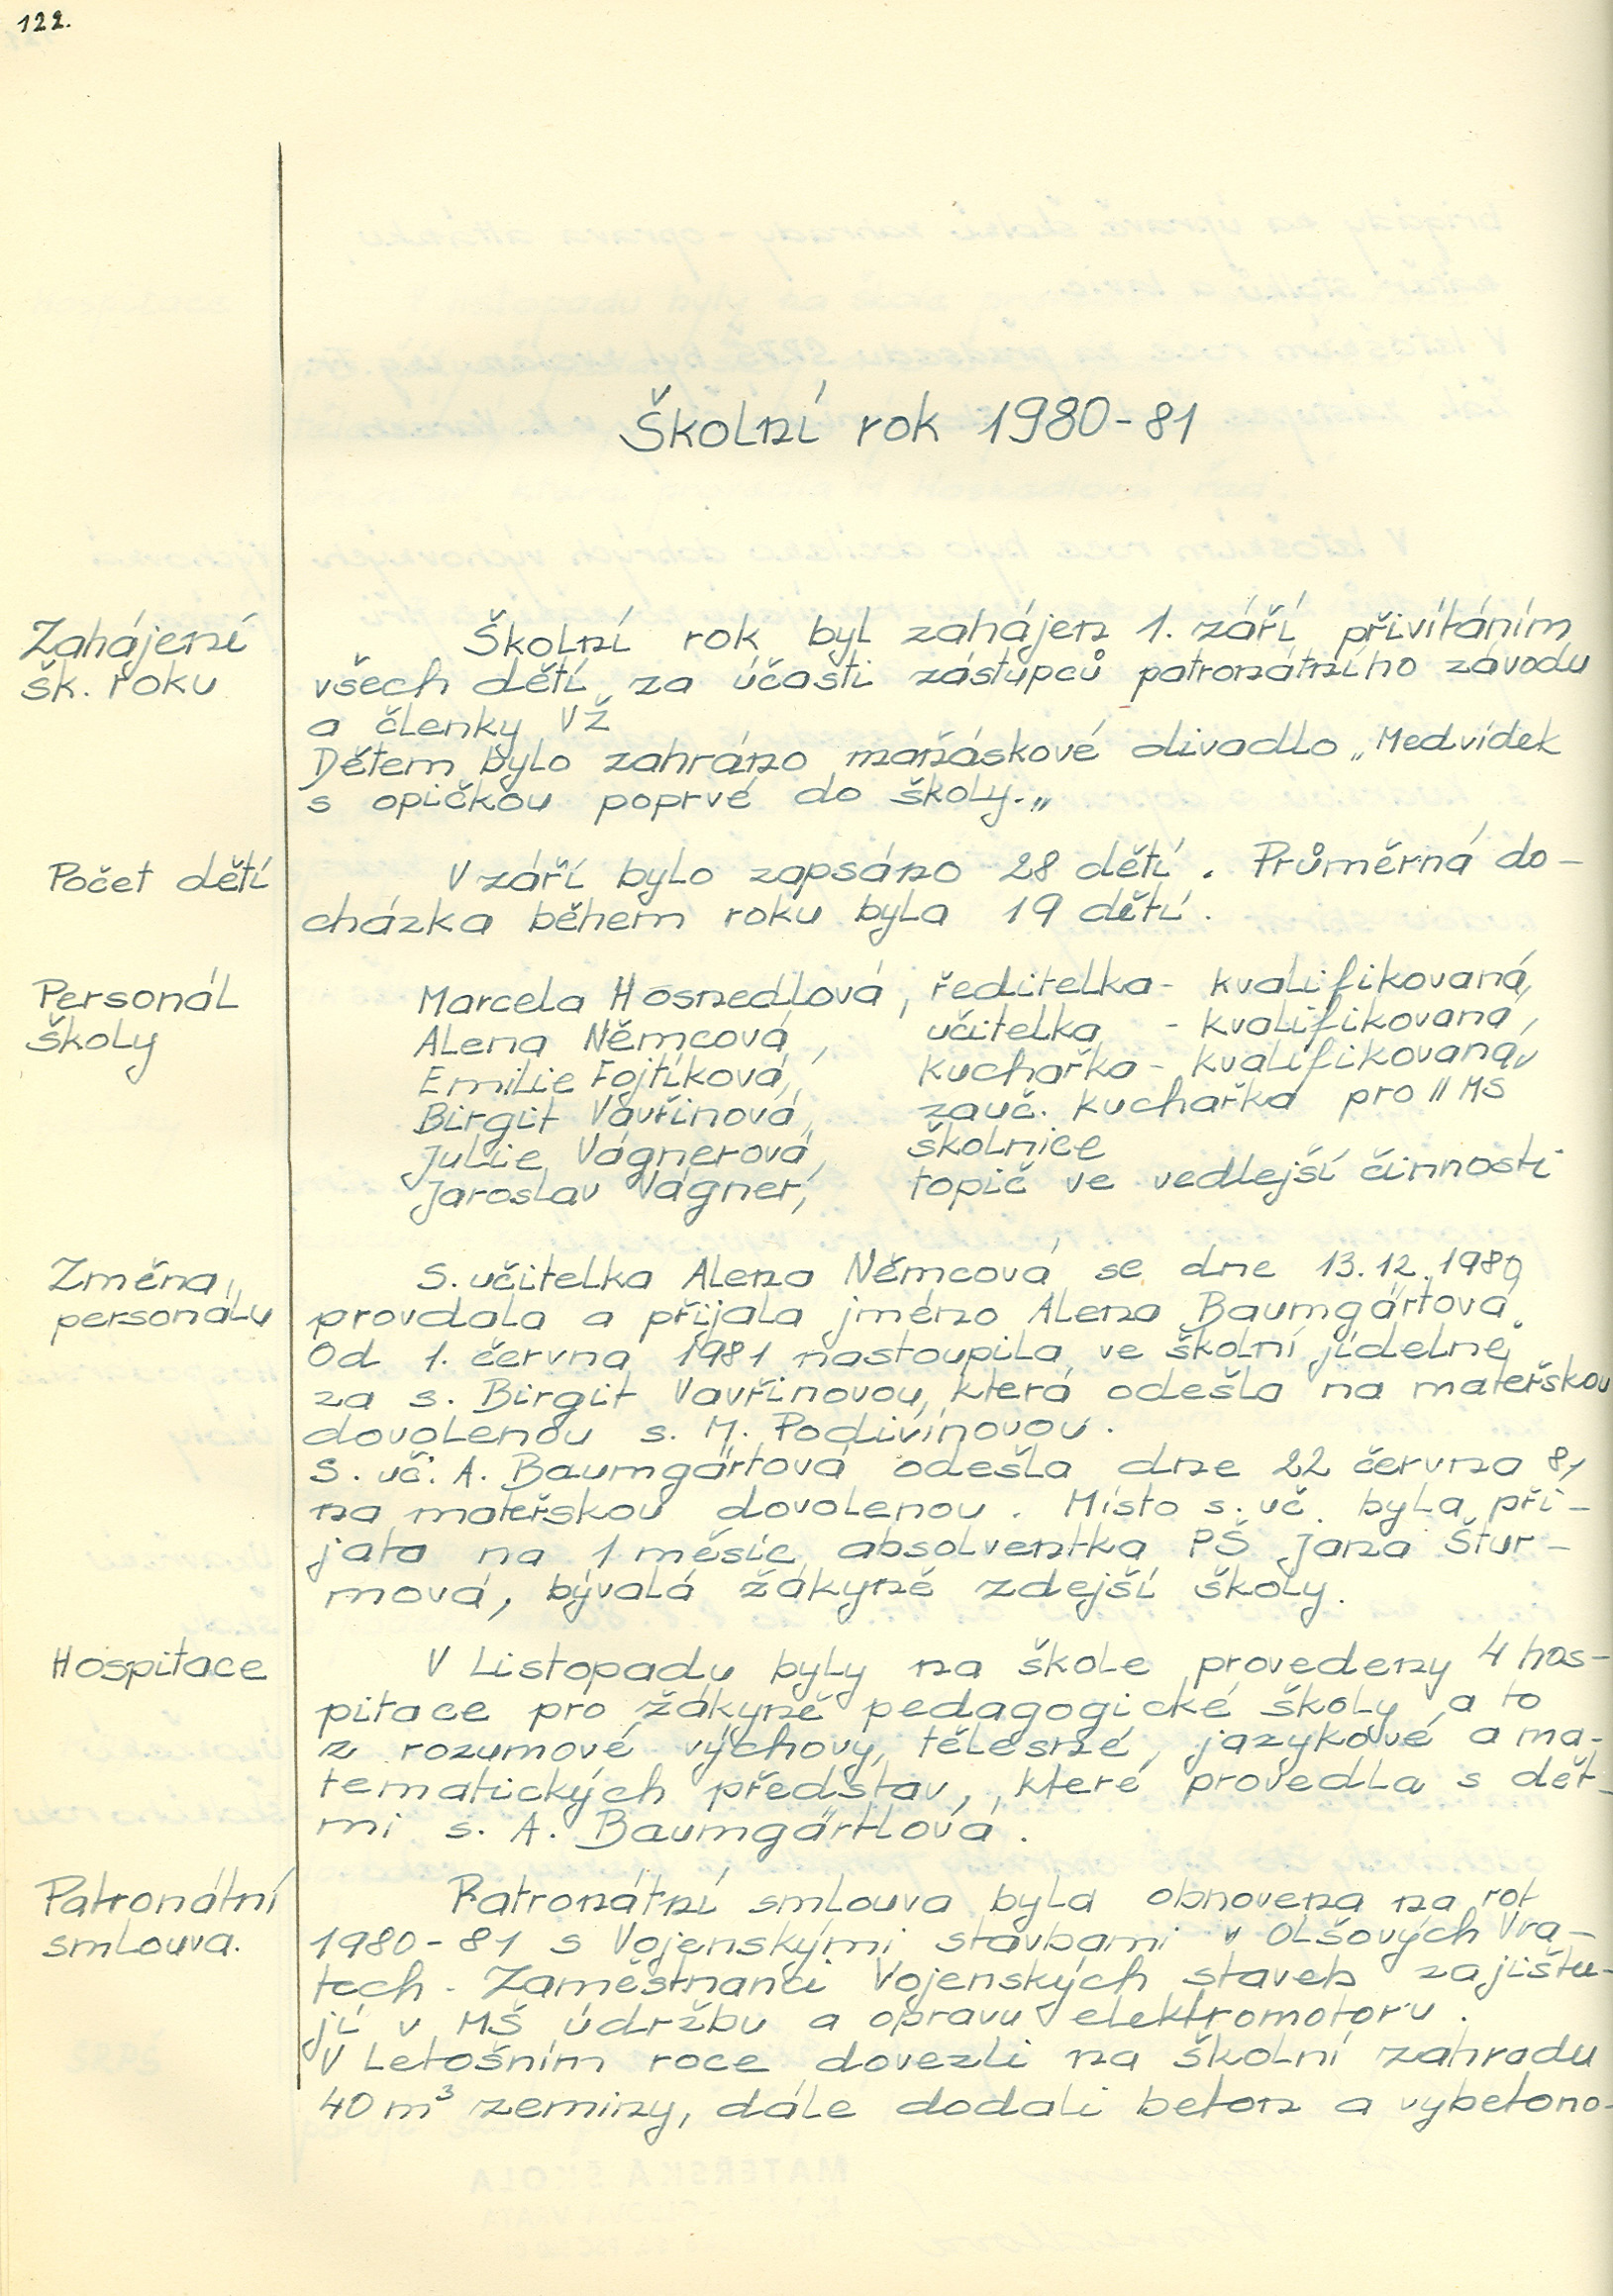 122.
Školní rok 1980-81
Zahájení
šk. roku
Školní rok byl zahájen 1. září přivítáním
všech dětí za účasti zástupců patronátního závodu
a členky VŽ
Dětem bylo zahráno maňáskové divadlo „Medvídek
s opičkou poprvé do školy.„
Počet dětí
V září bylo zapsáno 28 dětí. Průměrná do-
cházka během roku byla 19 dětí.
Personál
školy
Marcela Hosnedlová, ředitelka - kvalifikovaná,
Alena Němcová, učitelka - kvalifikovaná,
Emilie Fojtíková, kuchařka - kvalifikovaná,
Birgit Vavřinová, zauč. kuchařka pro II MŠ
Julie Vágnerová, školnice
Jaroslav Vágner, topič ve vedlejší činnosti
Změna
personálu
S. učitelka Alena Němcová se dne 13.12.1980
provdala a přijala jméno Alena Baumgärtová.
Od 1. června 1981 nastoupila ve školní jídelně
za s. Birgit Vavřinovou, která odešla na mateřskou
dovolenou s. M. Podivínovou.
S. uč. A. Baumgärtová odešla dne 22 června 81
na mateřskou dovolenou. Místo s. uč. byla při-
jata na 1 měsíc absolventka PŠ Jana Štur-
mová, bývalá žákyně zdejší školy.
Hospitace
V Listopadu byly na škole provedeny 4 hos-
pitace pro žákyně pedagogické školy a to
z rozumové výchovy, tělesné, jazykové a ma-
tematických představ, které provedla s dět-
mi s. A. Baumgärtlová.
Patronátní
smlouva.
Patronátní smlouva byla obnovena na rok
1980-81 s Vojenskými stavbami v Olšových Vra-
tech. Zaměstnanci Vojenských staveb zajištu-
jí v MŠ údržbu a opravu elektromotoru.
V Letošním roce dovezli na školní zahradu
40 m³ zeminy, dále dodali beton a vybetono-